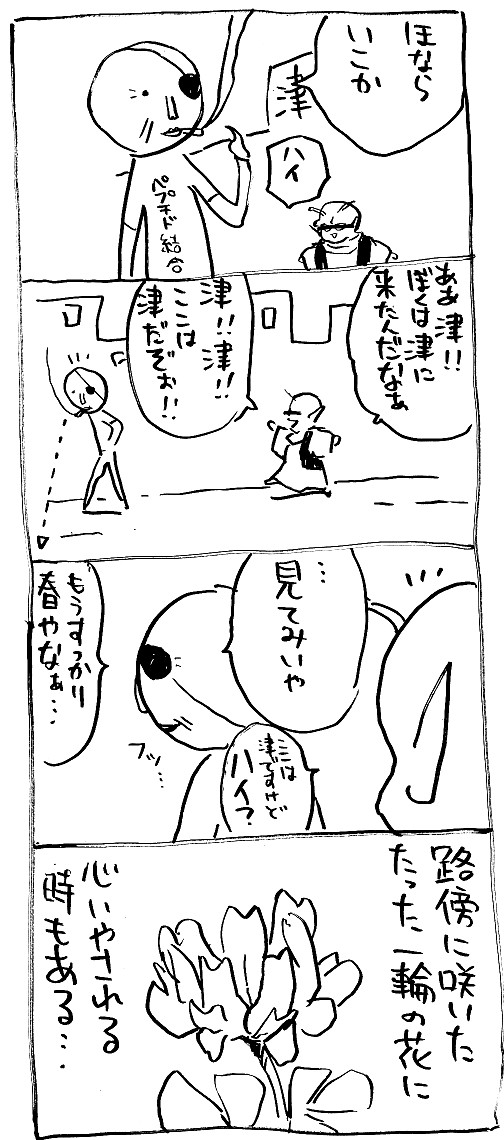 ほなら
いこか
津
ハイ
ペプチド結合
ああ津!!
ぼくは津に
来たんだなぁ
津!!津!!
ここは
津だぞぉ!!
…
見てみいや
ここは
津ですけど
ハイ?
フッ…
もうすっかり
春やなぁ…
路傍に咲いた
たった一輪の花に
心いやされる
時もある…